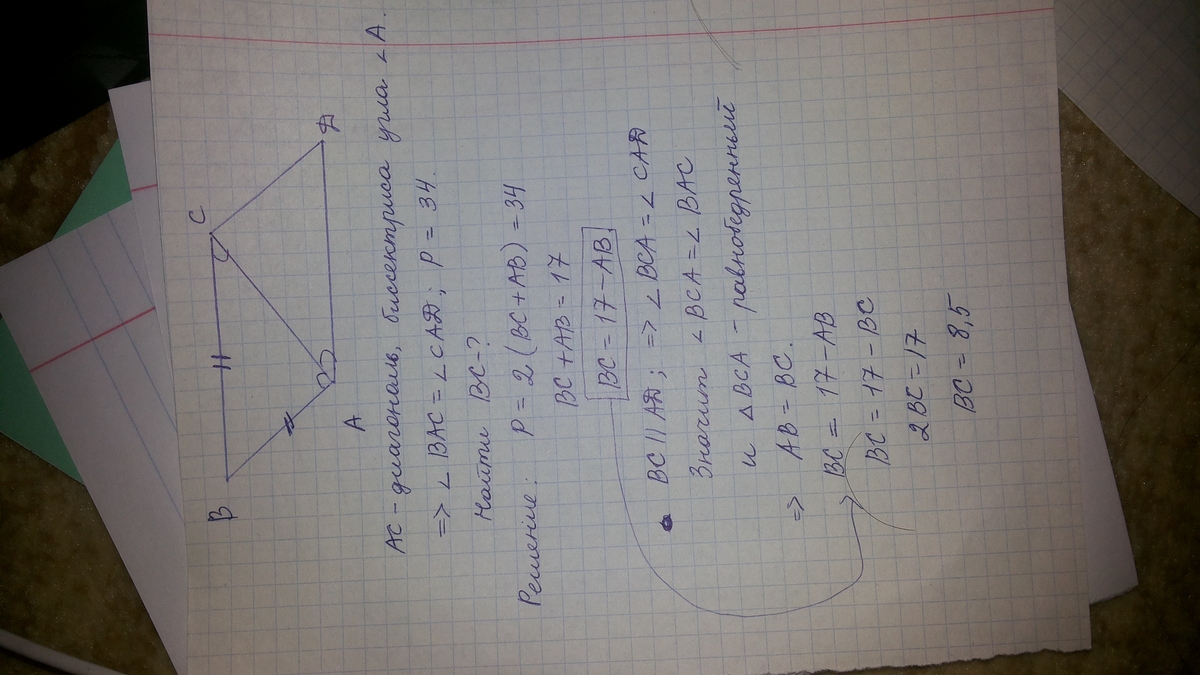 B C
A D
AC - диагональ, биссектриса угла ∠A.
=> ∠BAC = ∠CAD; P = 34.
Найти BC-?
Решение: P = 2(BC+AB) = 34
BC+AB = 17
BC = 17-AB
BC || AD; => ∠BCA = ∠CAD
Значит ∠BCA = ∠BAC
и △BCA - равнобедренный
=> AB = BC.
BC = 17-AB
BC = 17-BC
2BC = 17
BC = 8,5